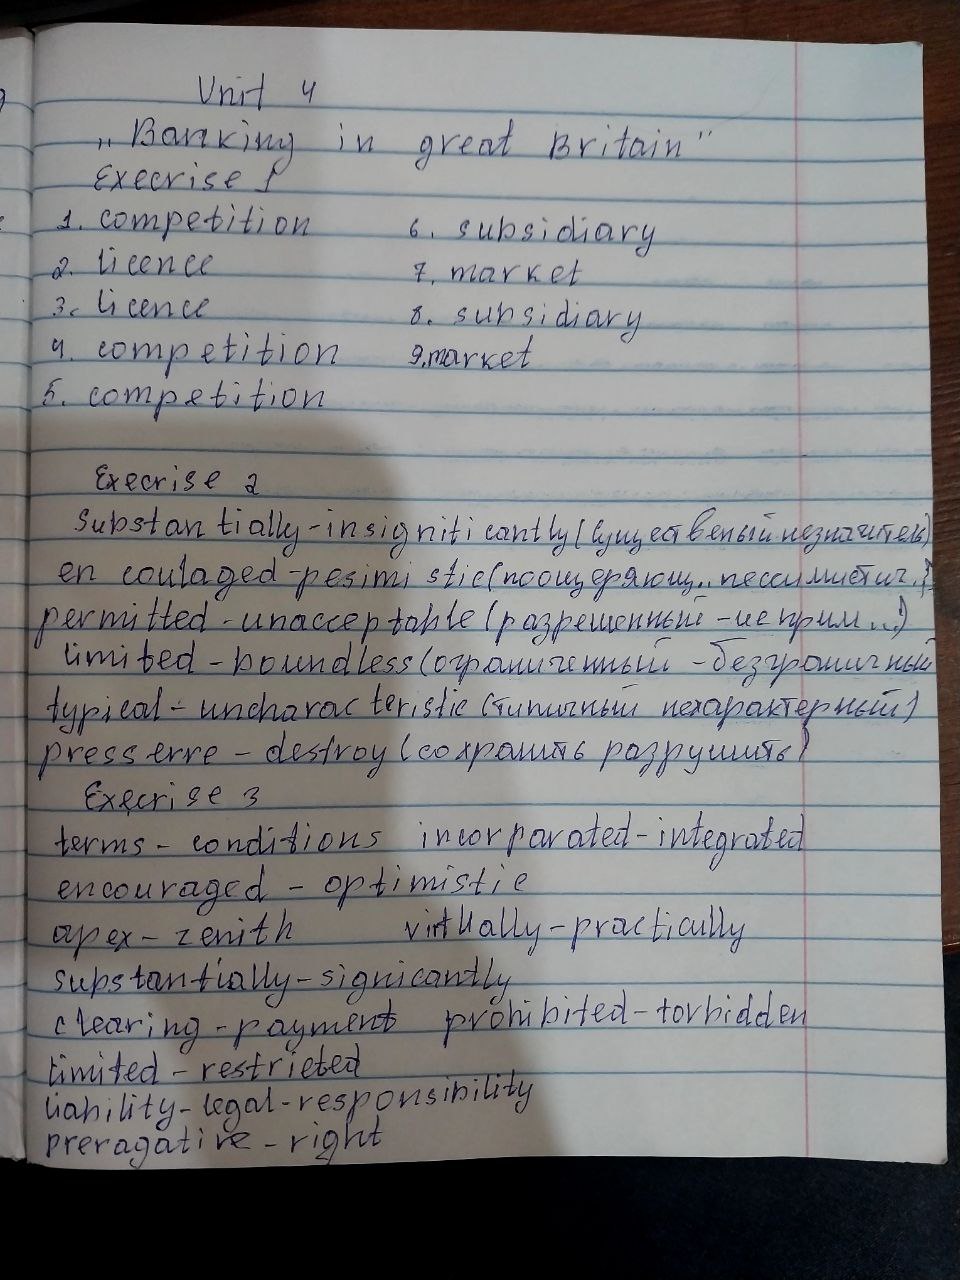 Unit 4
„Banking in great Britain"
Execrise 1
1. competition 6. subsidiary
2. licence 7. market
3. licence 8. subsidiary
4. competition 9. market
5. competition
Execrise 2
substantially-insigniticantly (существеный незначительн)
encoulaged-pesimistic (поощеряющ.. пессимистич.)
permitted-unacceptable (разрешенный - неприм...)
limited-boundless (ограниченный - безграничный
typical-uncharacteristic (типичный нехарактерный)
presserre - destroy (сохранить разрушить)
Execrise 3
terms - conditions incorparated-integrated
encouraged - optimistic
apex-zenith virtually-practically
substantially-signicantly
clearing-payment prohibited-torbidden
limited-restricted
liability-legal-responsibility
preragative-right